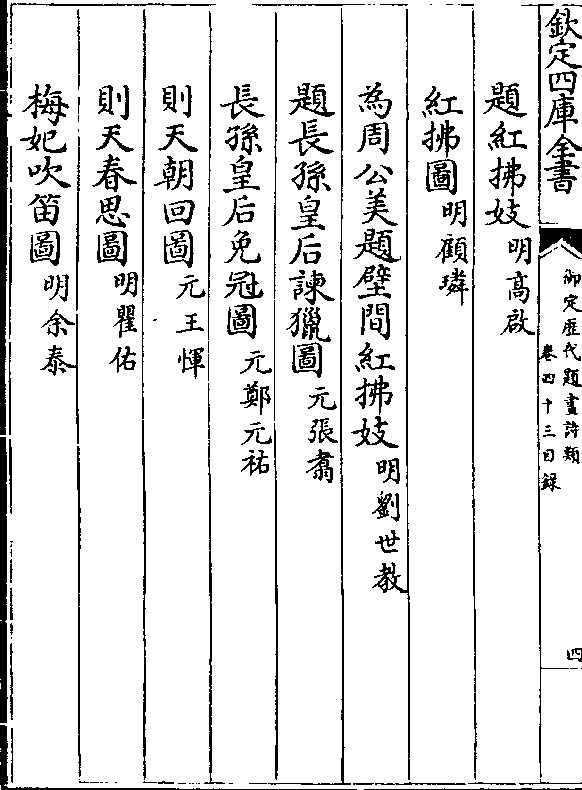 欽定四庫全書
御定歷代題畫詩類
卷四十三目錄
四
題紅拂妓明高啟
紅拂圖明顧璘
為周公美題壁間紅拂妓明劉世教
題長孫皇后諫獵圖元張翥
長孫皇后免冠圖元鄭元祐
則天朝回圖元王惲
則天春思圖明瞿佑
梅妃吹笛圖明余泰